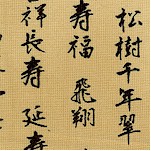 松樹千年翠
寿福 飛翔
祥長寿 延寿